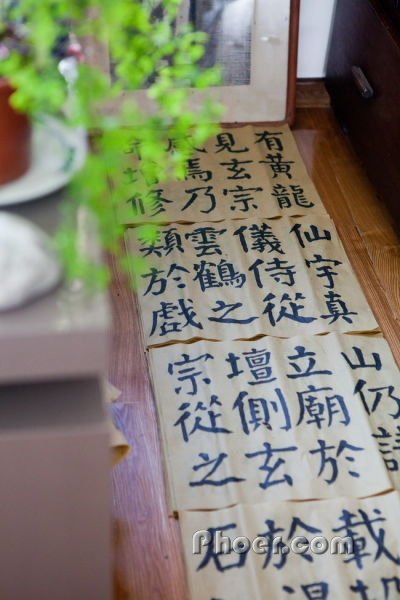 有黃龍
見玄宗
感焉乃
增修
仙宇真
儀侍從
雲鶴之
類於戲
山仍請
立廟於
壇側玄
宗從之
載
於
石
Phoer.com